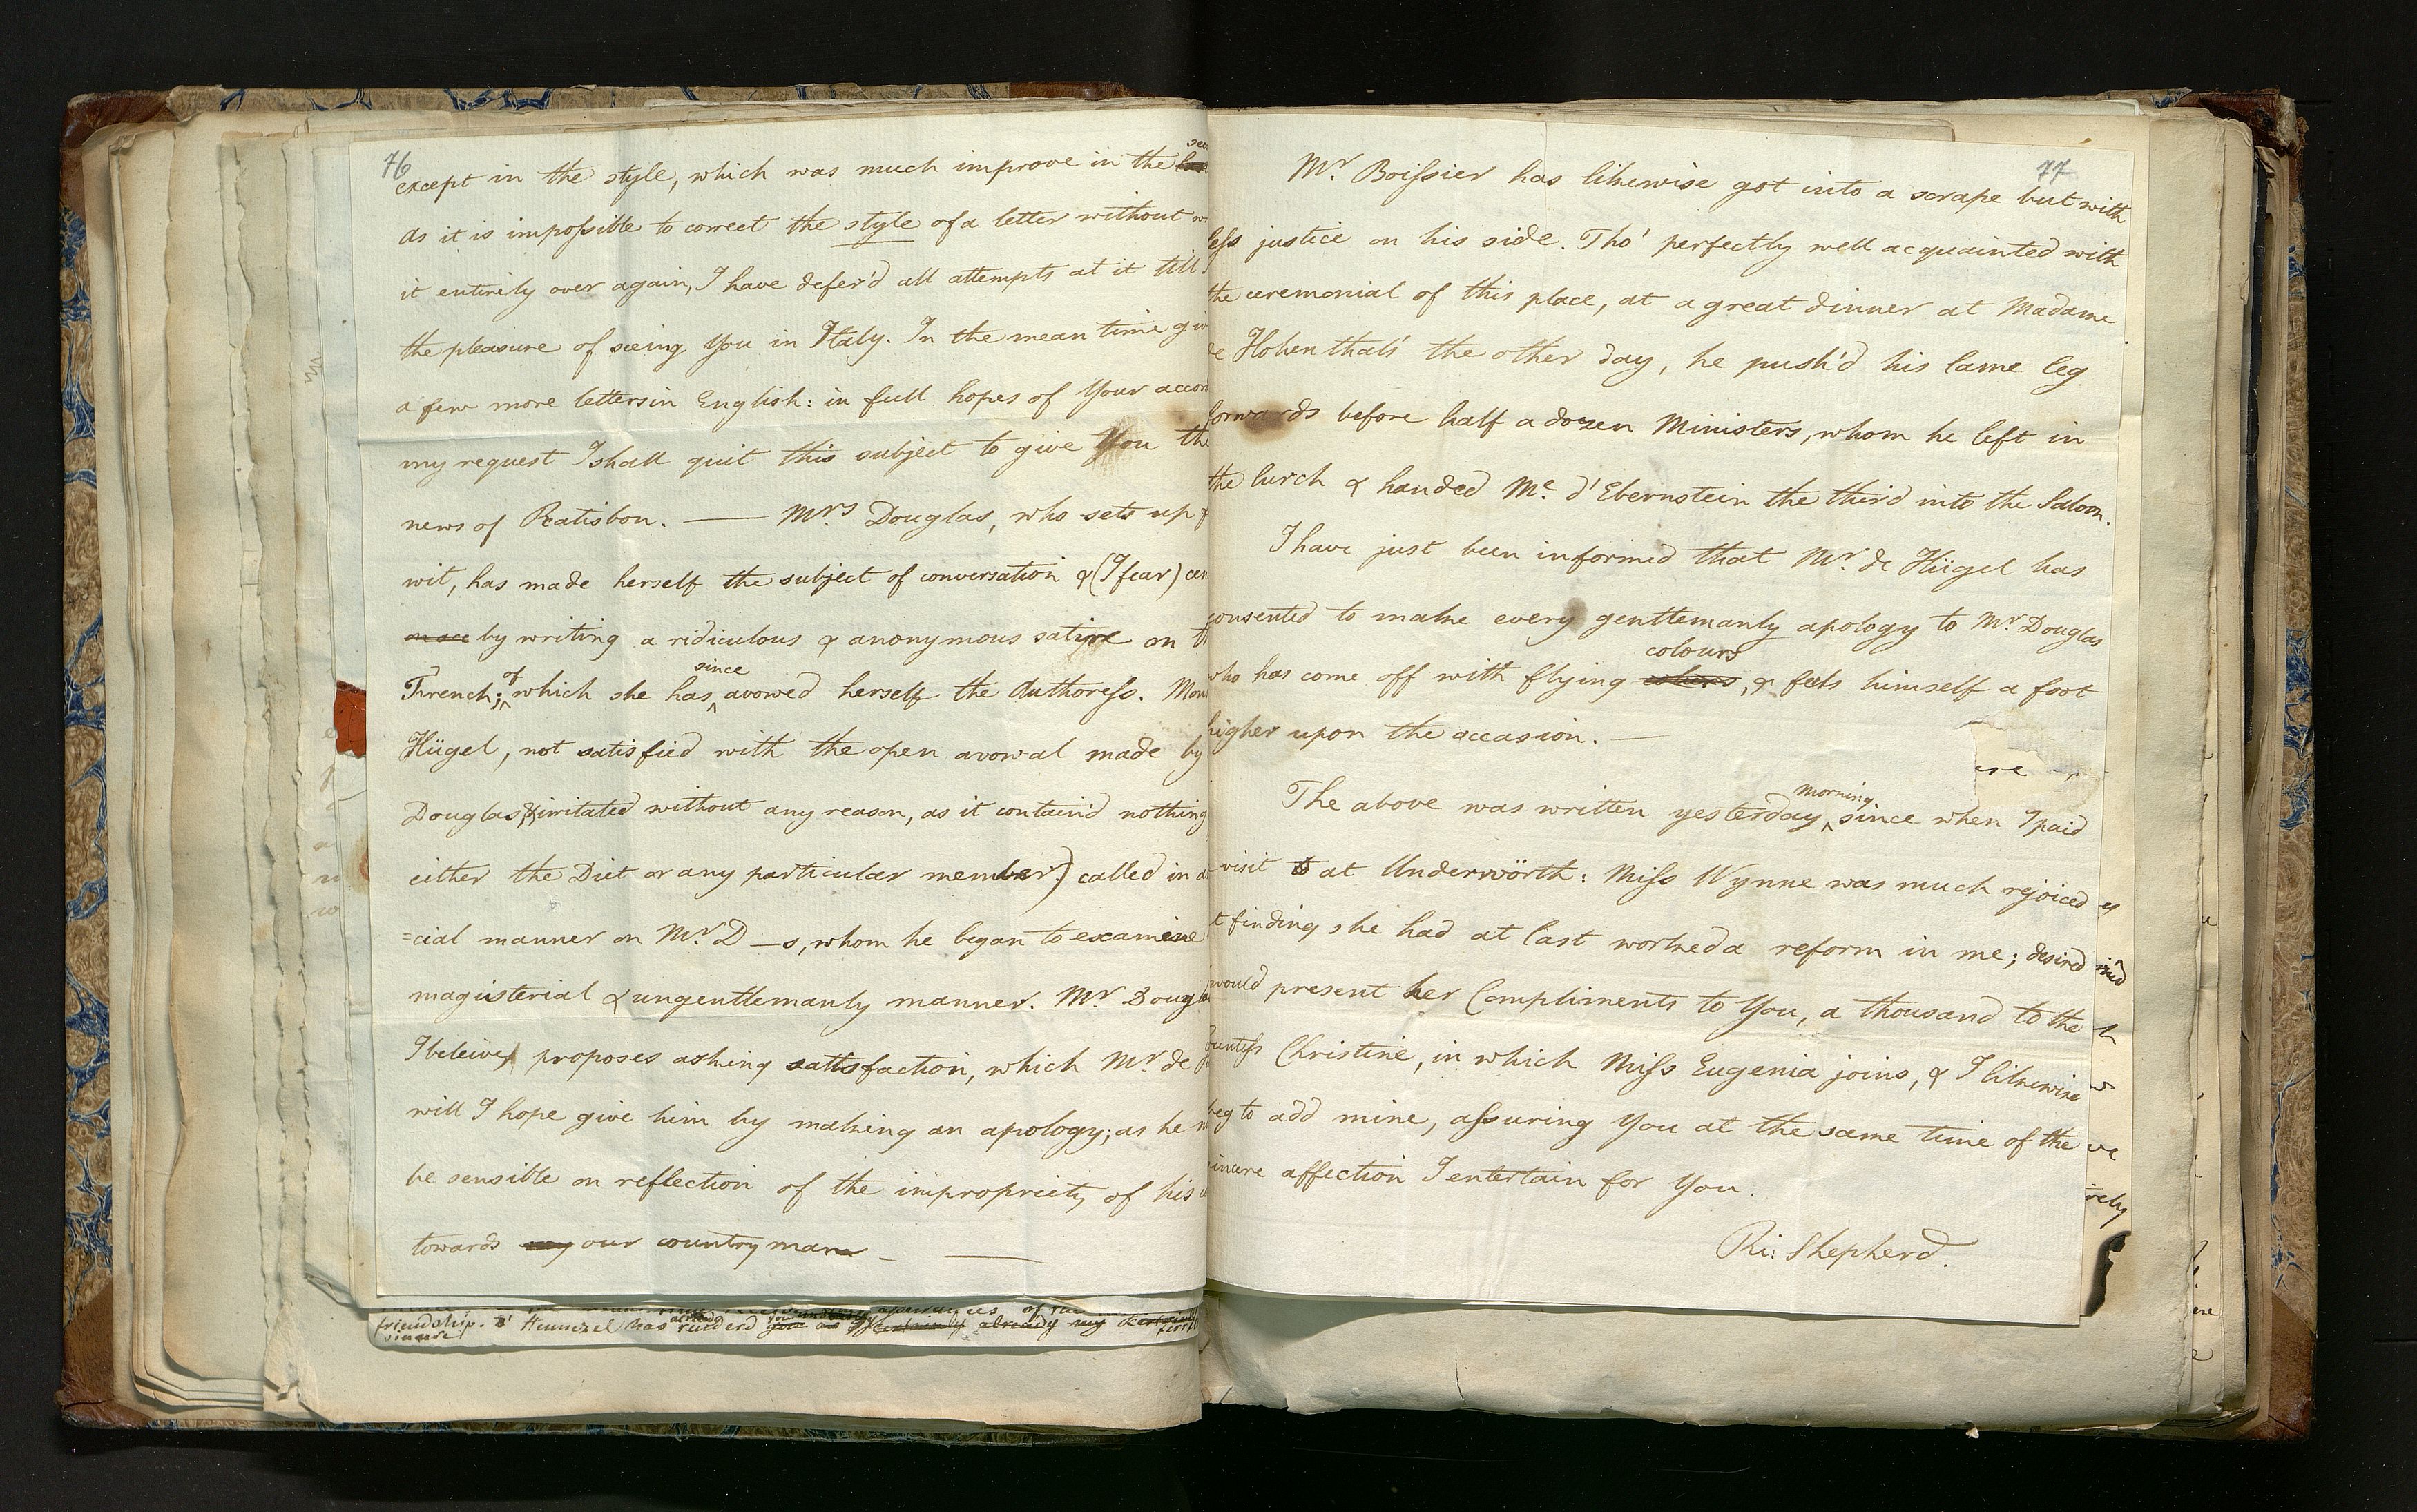 76
except in the style, which was much improve in the
As it is impossible to correct the style of a letter without
it entirely over again, I have defer'd all attempts at it till
the pleasure of seeing You in Italy. In the mean time
a few more letters in English: in full hopes of Your
my request I shall quit this subject to give You the
news of Ratisbon. — Mrs Douglas, who sets up
wit, has made herself the subject of conversation & (I fear)
by writing a ridiculous & anonymous satire on
French; of which she has since avowed herself the Authoress.
Hügel, not satisfied with the open avowal made by
Douglas, (& irritated without any reason, as it contain'd nothing
either the Diet or any particular member) called in
=cial manner on Mr. D—s, whom he began to examine
magisterial & ungentlemanly manner. Mr Dougl
I beleive, proposes asking sattisfaction, which Mr. de
will I hope give him by making an apology; as he
be sensible on reflection of the impropriety of his
towards my our countryman — —
friendship. d'Hemezel has
sincere
77
Mr. Boissier has likewise got into a scrape but with
less justice on his side. Tho' perfectly well acquainted with
the ceremonial of this place, at a great dinner at Madame
de Hohenthals' the other day, he push'd his lame leg
forwards before half a dozen Ministers, whom he left in
the lurch & handed Me. d'Ebernstein the third into the Saloon.
I have just been informed that Mr. de Hügel has
consented to make every gentlemanly apology to Mr. Douglas
who has come off with flying colours, & feels himself a foot
higher upon the occasion. —
The above was written yesterday morning, since when I paid
visit at Underwörth: Miss Wynne was much rejoiced
t finding she had at last worked a reform in me; desired
would present her Compliments to You, a thousand to the
ountess Christine, in which Miss Eugenia joins, & I likewise
beg to add mine, assuring You at the same time of the
sincere affection I entertain for You.
Ri: Shepherd.